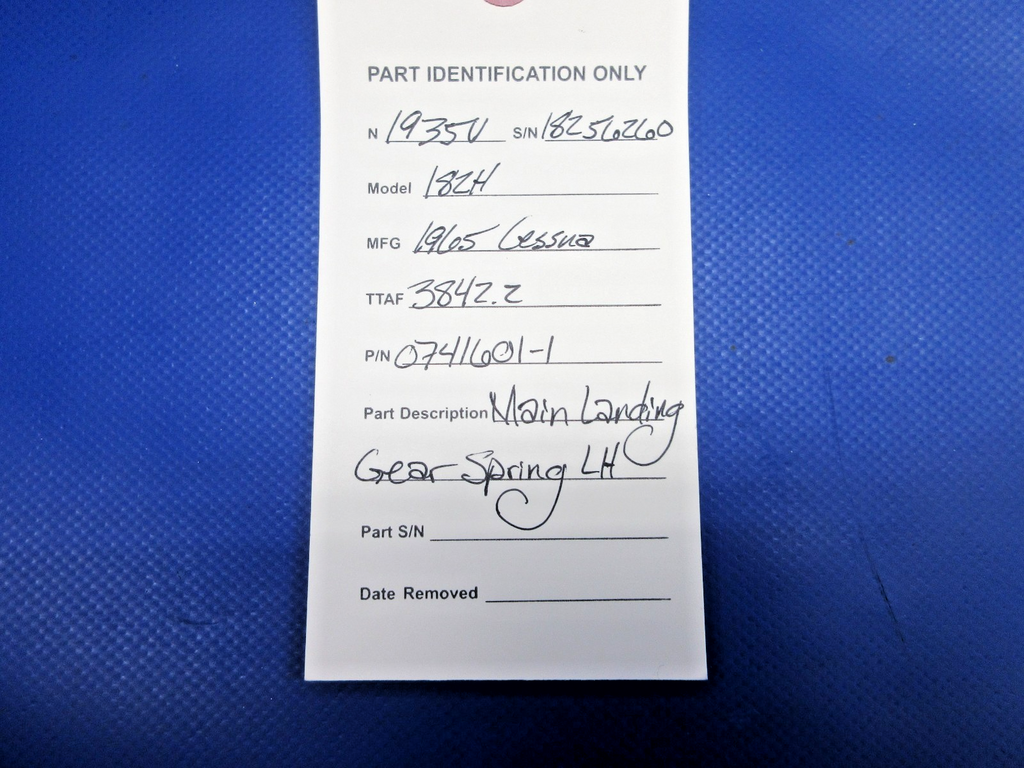 PART IDENTIFICATION ONLY
N 1935V S/N 18256260
Model 182H
MFG 1965 Cessna
TTAF 3842.2
P/N 0741601-1
Part Description Main Landing
Gear Spring LH
Part S/N
Date Removed